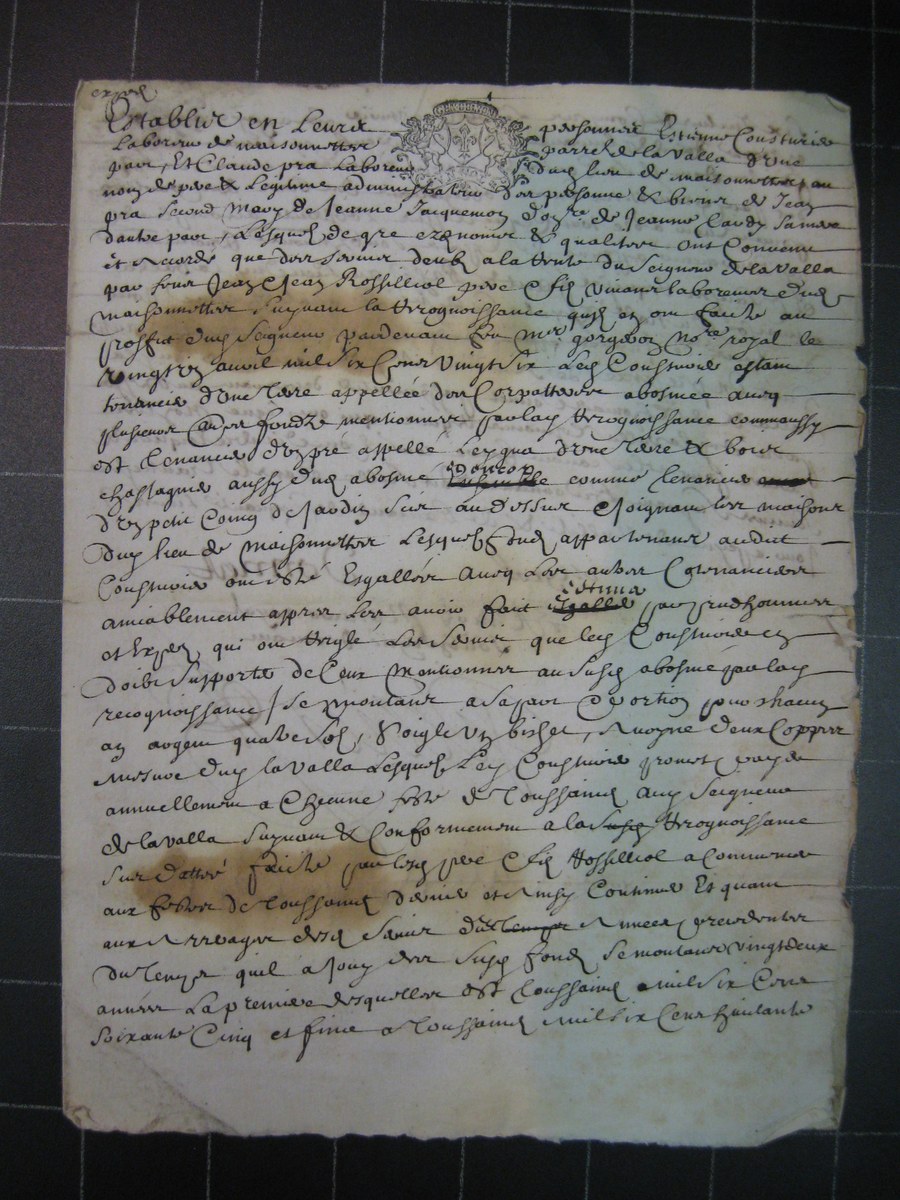 Establis en Leurs personnes Estienne Cousturie
Laboreur de maisonnettes parroisse de la Valla d'une
part, Et Claude pra Laboreur dud lieu de maisonnettes, au
nom de pere & Legitime administrateur des personne & biens de Jean
pra second mary de Jeanne Jacquemon de Jeanne Claudy
dautre part, Lesquels de gre ez noms & qualites ont Convenu
et Acordé que des servis deubs a la rente du Seigneur de la Valla
par feus Jean & Jean Rossilliol pere & fils vivans laboreurs dud
maisonnettes suyvant la recognoissance quils en ont faicte au
proffit dud Seigneur pardevant feu Mre gorgeron nore royal le
vingt avril mil six Cens Vingt six Led Cousturie estant
tenancier d'une terre appellée des Corpattes abosnée avec
plusieurs aultres fondz mentionnes par lad recognoissance comm'aussy
est tenancier d'un pré appellé Leygua d'une terre & bois
chastagnier aussy dud abosné comme tenancier
d'un petit Coing de Jardin scis au dessus & Joignant les maisons
dud lieu de Maisonnettes Lesquels fonds appartenans audict
Cousturie ont esté Esgallés Avec Les autres Cotenanciers
amiablement appres Les avoir faict estimer par prudhommes
et Experts qui ont reigle Les servis que led Cousturie en
doibt supporte de Ceux mentionnes au susd abosné par lad
recognoissance / se montant a sa part & portion pour chacun
an argent quatre sols, soigle un bichet, Avoyne deux Coppes
mesure dud la Valla Lesquels Led Cousturie promet payer
annuellement a Chacune feste de Toussainctz Aud Seigneur
de la Valla suyvant & Conformement a la susd recognoissance
sus dattée faicte par lesd pere & fils Rossilliol a Commencer
aux festes de Toussainctz dernier et Ainsy Continuer Et quant
aux Arrerages desd servis du temps Annees precedentes
du temps quil a Jouy des susd fonds se montans vingt deux
années La premiere desquelles est Toussainctz mil six Cens
soixante Cinq et finie a Toussainctz Mil six Cens huictante